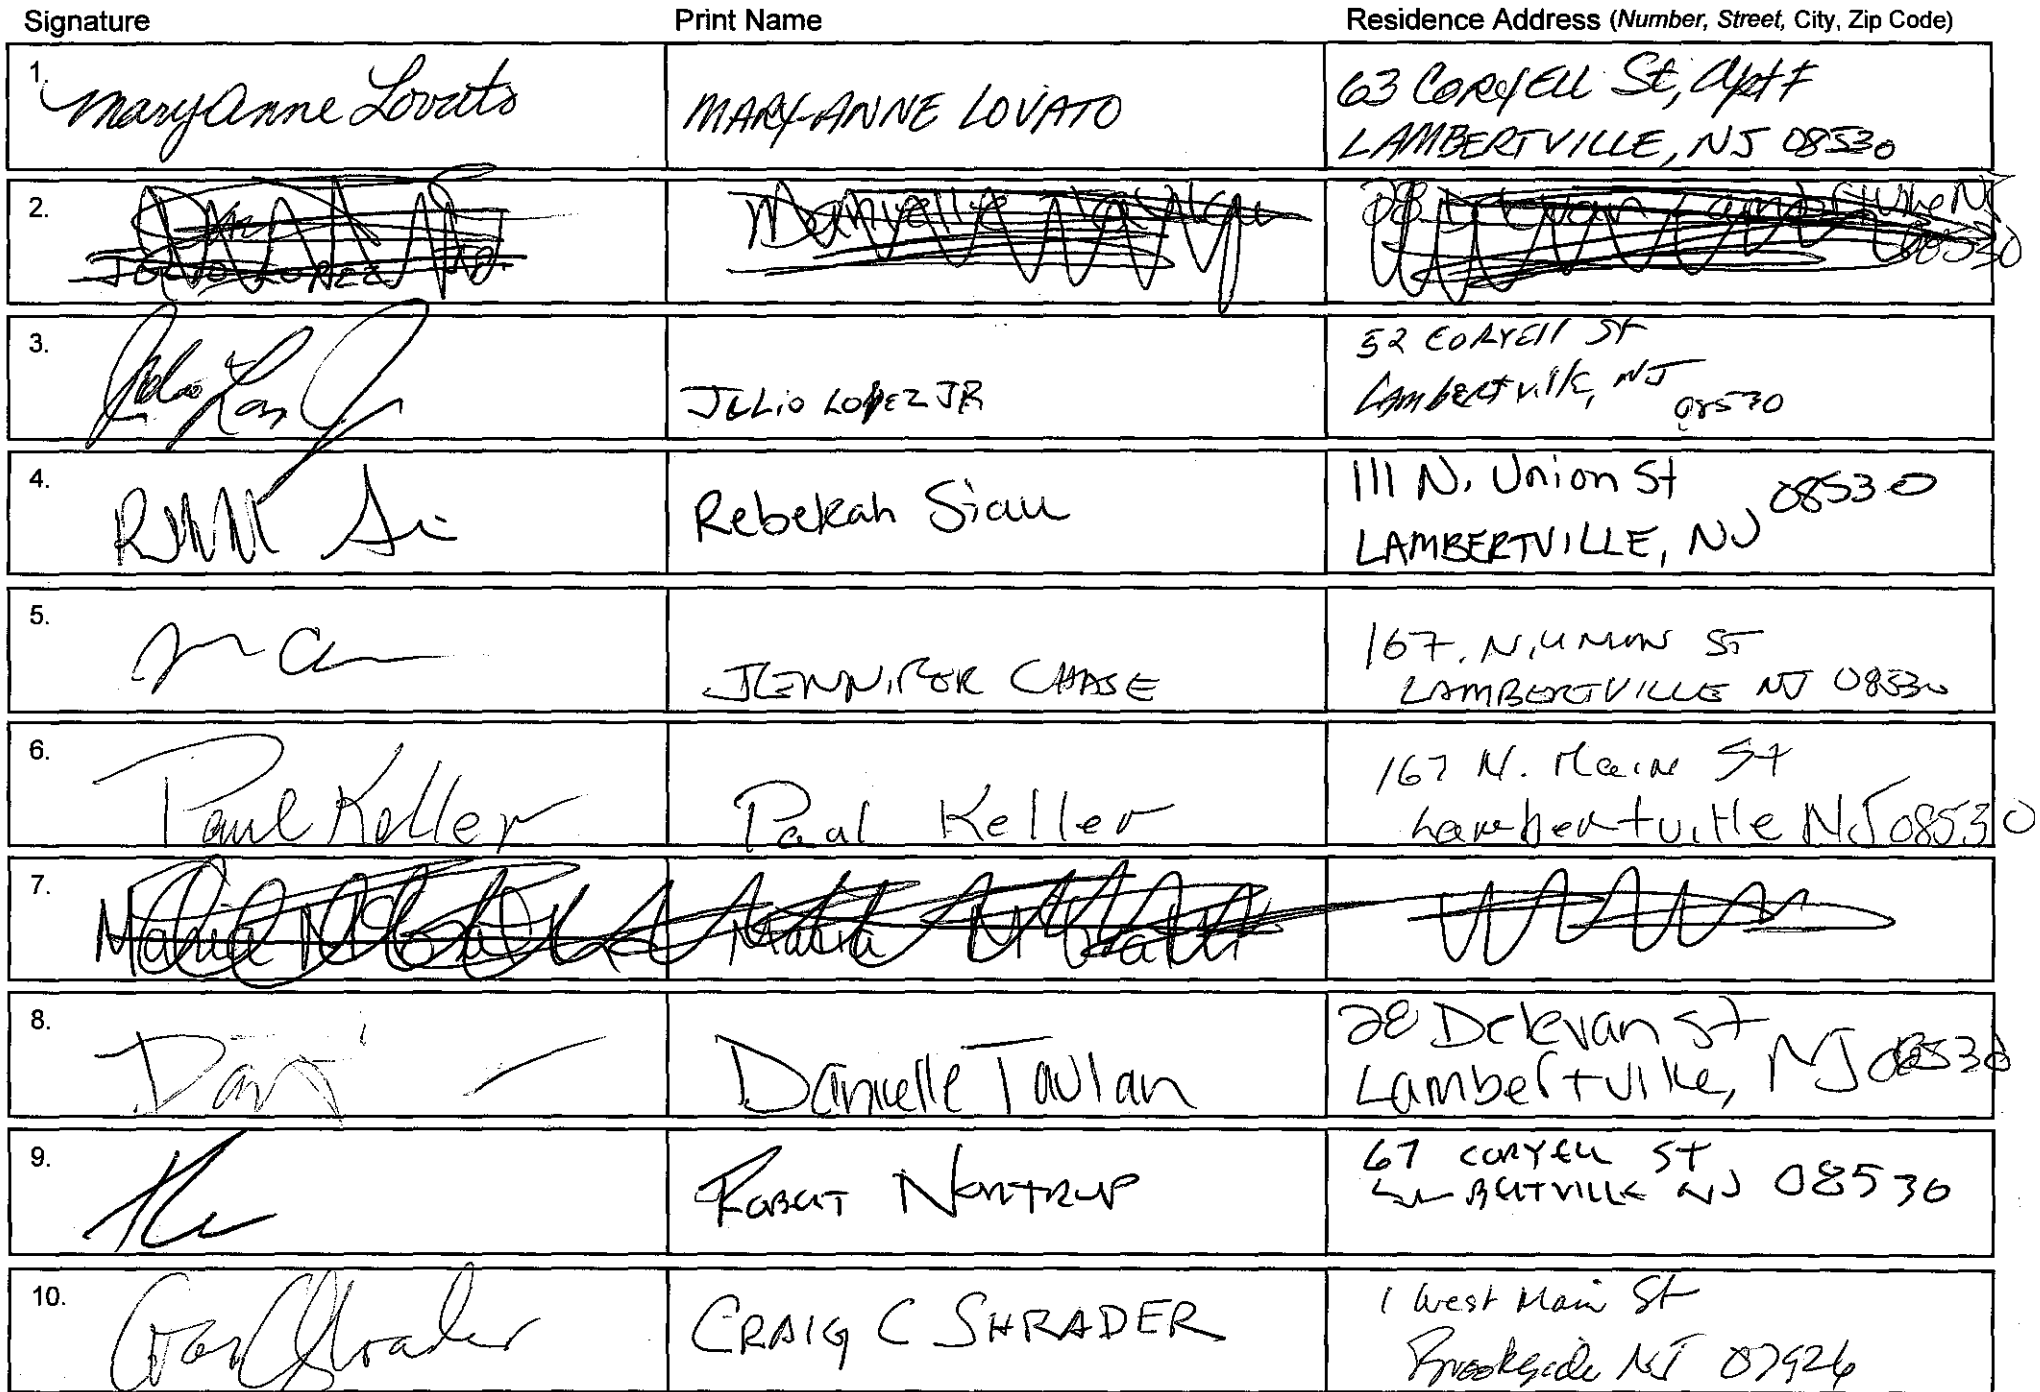 Signature Print Name Residence Address (Number, Street, City, Zip Code)
1. MaryAnne Lovato MARY-ANNE LOVATO 63 CORYELL St, Apt F
LAMBERTVILLE, NJ 08530
2. 08530
JULIO LOPEZ
3. Julio Lopez Jr JULIO LOPEZ JR 52 CORYEll ST
Lambertville, NJ
08530
4. Rebekah Siau 111 N. Union St 08530
LAMBERTVILLE, NJ
5. JENNIFER CHASE 167. N. UNION ST
LAMBERTVILLE NJ 08530
6. Paul Keller Paul Keller 167 N. Main St
Lambertville NJ 08530
7. Maria Maria
8. Danielle 28 Delevan St
Lambertville, NJ 08530
9. ROBERT 67 CORYELL ST
LAMBERTVILLE NJ 08530
10. Craig C Shrader CRAIG C SHRADER 1 West Main St
Brookside NJ 07926